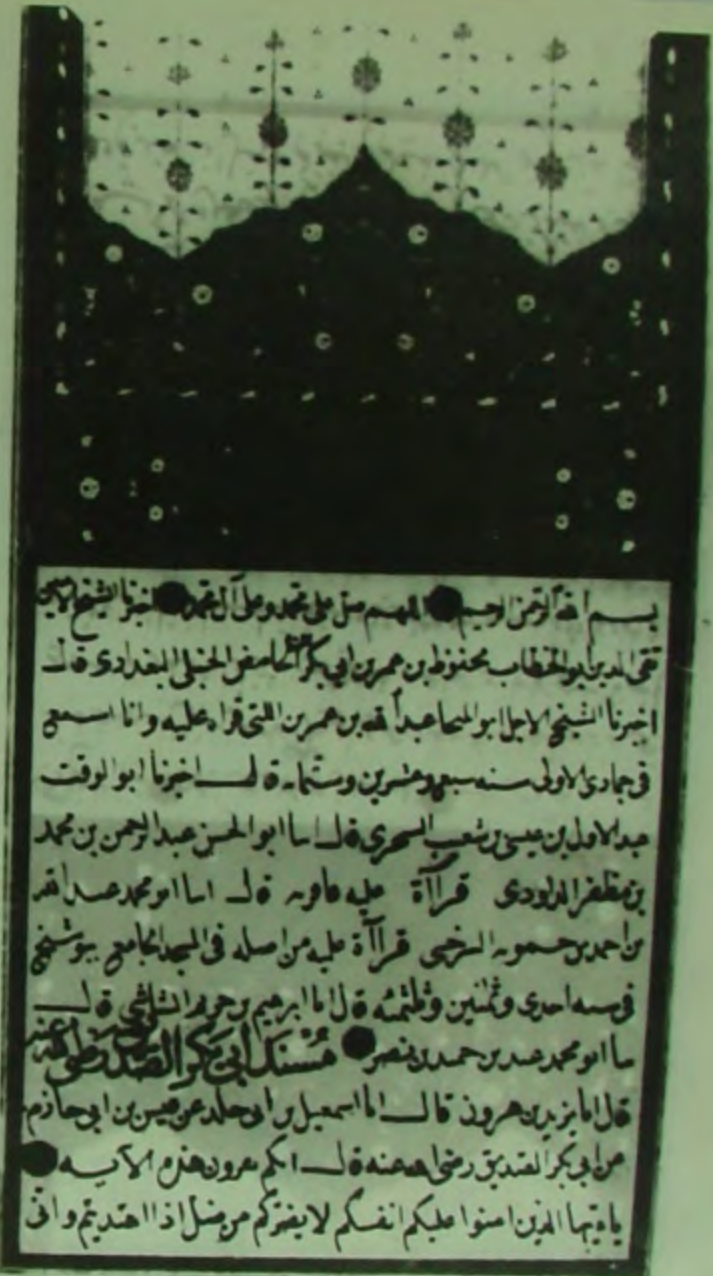 بسم الله الرحمن الرحيم اللهم صل على محمد وعلى آل محمد اخبرنا الشيخ الامين
تقى الدين ابو الخطاب محفوظ بن عمر بن ابى بكر الحامض الحنبلى البغدادى قال
اخبرنا الشيخ الاجل ابو المنجا عبد الله بن عمر بن اللتى قراه عليه وانا اسمع
فى جمادى الاولى سنه سبع وعشرين وستمايه قال اخبرنا ابو الوقت
عبد الاول بن عيسى بن شعيب السجزى قال اسا ابو الحسن عبد الرحمن بن محمد
بن مظفر الداودى قرآآة عليه قال اسا ابو محمد عبد الله
بن احمد بن حمويه السرخسى قرآآة عليه من اصله فى المسجد الجامع ببوشنج
فى سنه احدى وثمنين وثلثمئه قال اما ابرهيم بن خريم الشاشى قال
سا ابو محمد عبد بن حميد بن نصر مُسْنَد ابى بكر الصديق رضى الله عنه
قال اما يزيد بن هرون قال اما اسمعيل بن ابى خلد عن قيس بن ابى حازم
عن ابى بكر الصديق رضى الله عنه قال انكم تقرون هذه الآيه
يا ءيها الذين امنوا عليكم انفسكم لا يضركم من ضل اذا اهتديتم وانى